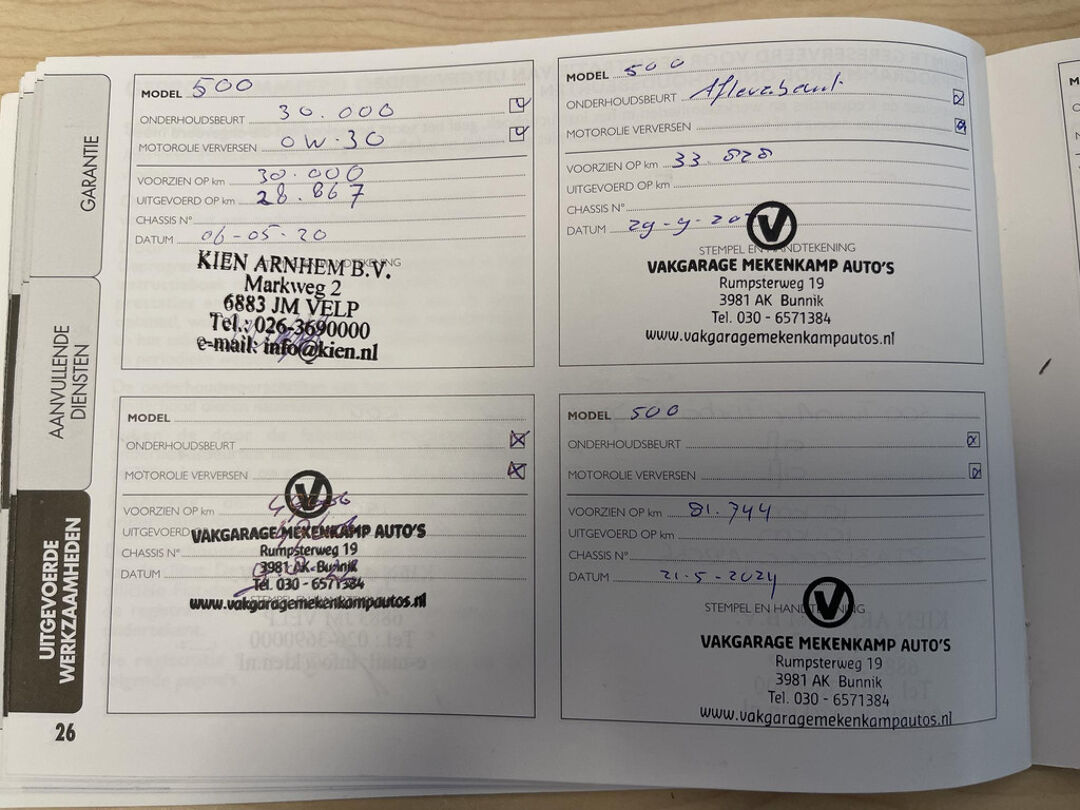 GARANTIE
AANVULLENDE
DIENSTEN
UITGEVOERDE
WERKZAAMHEDEN
26
MODEL 500
ONDERHOUDSBEURT 30.000
MOTOROLIE VERVERSEN 0W-30
VOORZIEN OP km 30.000
UITGEVOERD OP km 28.867
CHASSIS N°
DATUM 06-05-20
KIEN ARNHEM B.V.
Markweg 2
6883 JM VELP
Tel.: 026-3690000
e-mail: info@kien.nl
MODEL 500
ONDERHOUDSBEURT Afleverbeurt
MOTOROLIE VERVERSEN
VOORZIEN OP km 33.828
UITGEVOERD OP km
CHASSIS N°
DATUM
STEMPEL EN HANDTEKENING
VAKGARAGE MEKENKAMP AUTO'S
Rumpsterweg 19
3981 AK Bunnik
Tel. 030 - 6571384
www.vakgaragemekenkampautos.nl
MODEL
ONDERHOUDSBEURT
MOTOROLIE VERVERSEN
VOORZIEN OP km
UITGEVOERD OP
CHASSIS N°
DATUM
VAKGARAGE MEKENKAMP AUTO'S
Rumpsterweg 19
3981 AK Bunnik
Tel. 030 - 6571384
www.vakgaragemekenkampautos.nl
MODEL 500
ONDERHOUDSBEURT
MOTOROLIE VERVERSEN
VOORZIEN OP km 81.744
UITGEVOERD OP km
CHASSIS N°
DATUM 21-5-2024
STEMPEL EN HANDTEKENING
VAKGARAGE MEKENKAMP AUTO'S
Rumpsterweg 19
3981 AK Bunnik
Tel. 030 - 6571384
www.vakgaragemekenkampautos.nl